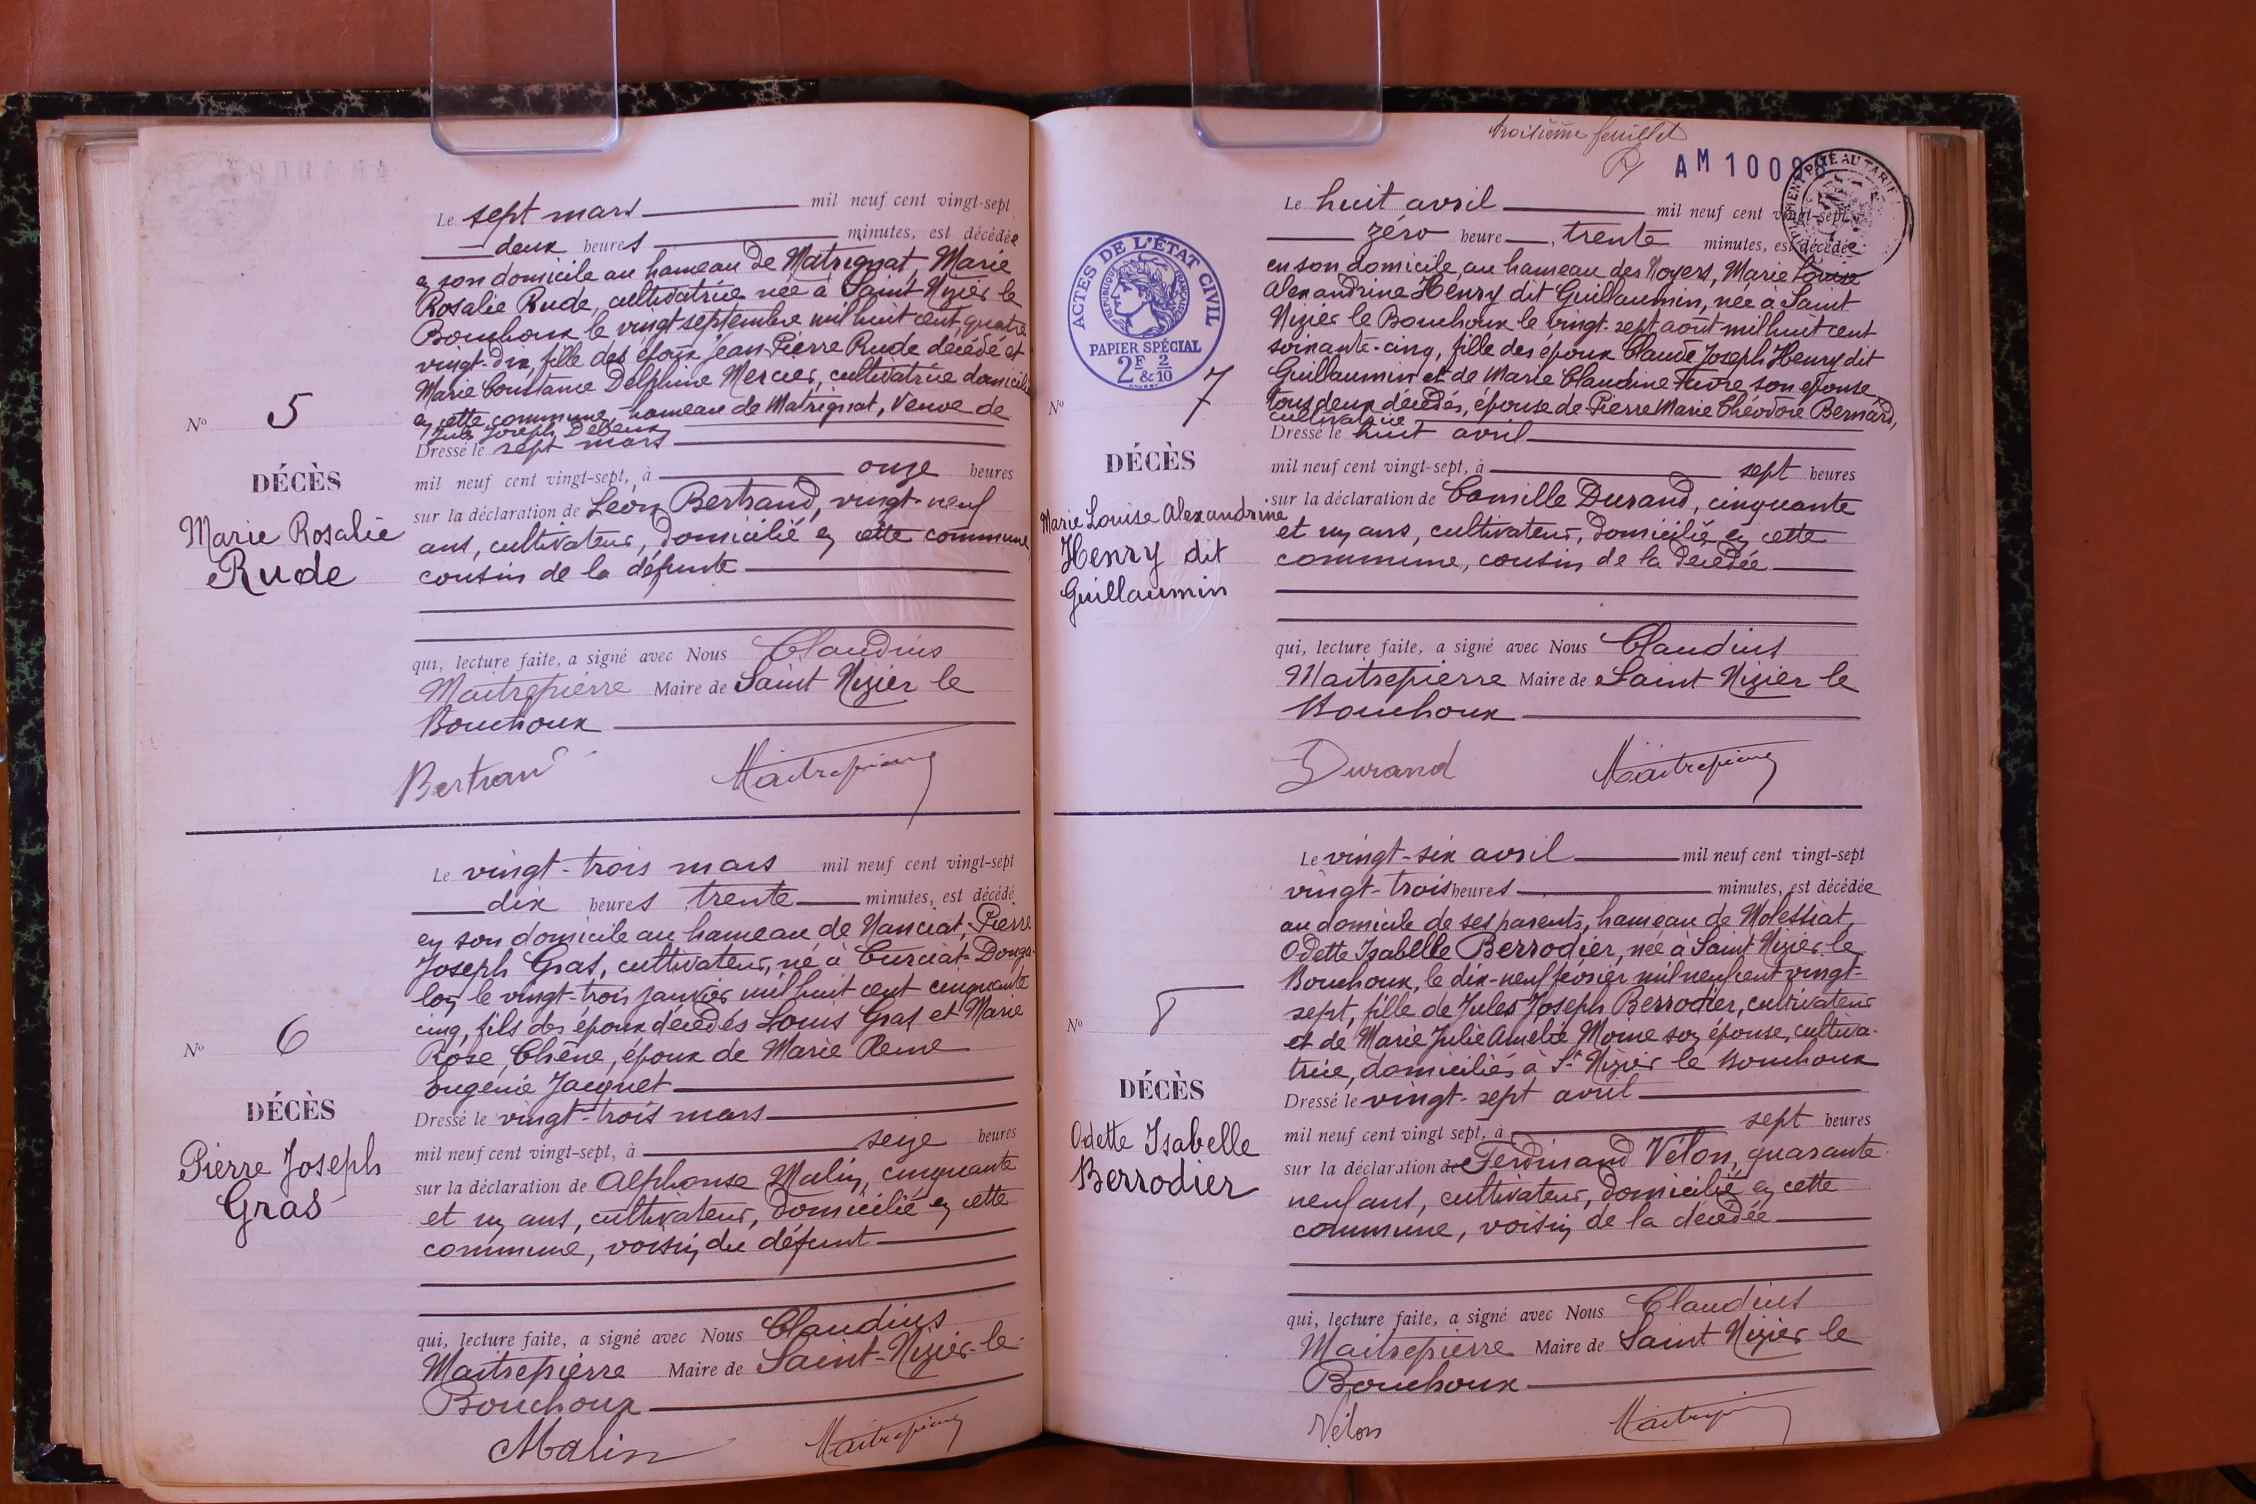 Le sept mars mil neuf cent vingt-sept
deux heures minutes, est décédée
en son domicile au hameau de Matrignat, Marie
Rosalie Rude, cultivatrice née à Saint Nizier le
Bouchoux le vingt septembre mil huit cent quatre
vingt-dix, fille des époux Jean Pierre Rude décédé et
Marie Constance Delphine Mercier, cultivatrice domiciliée
en cette commune hameau de Matrignat, veuve de
Jules Joseph
Dressé le sept mars
mil neuf cent vingt-sept, à onze heures
sur la déclaration de Léon Bertrand, vingt-neuf
ans, cultivateur, domicilié en cette commune,
cousin de la défunte
qui, lecture faite, a signé avec Nous Claudius
Maitrepierre Maire de Saint Nizier le
Bouchoux
Bertrand Maitrepierre
No 5
DÉCÈS
Marie Rosalie
Rude
Le vingt-trois mars mil neuf cent vingt-sept
dix heures trente minutes, est décédé
en son domicile au hameau de Nanciat, Pierre
Joseph Gras, cultivateur, né à Curciat-Donga-
lon le vingt-trois janvier mil huit cent cinquante
cinq, fils des époux décédés Louis Gras et Marie
Rose Chêne, époux de Marie Reine
Eugénie Jacquet
Dressé le vingt-trois mars
mil neuf cent vingt-sept, à seize heures
sur la déclaration de Alphonse Malin, cinquante
et un ans, cultivateur, domicilié en cette
commune, voisin du défunt
qui, lecture faite, a signé avec Nous Claudius
Maitrepierre Maire de Saint-Nizier-le-
Bouchoux
Malin Maitrepierre
No 6
DÉCÈS
Pierre Joseph
Gras
troisième feuillet
AM 1009
ACTES DE L'ÉTAT CIVIL
RÉPUBLIQUE FRANÇAISE
PAPIER SPÉCIAL
2F & 2/10
Le huit avril mil neuf cent vingt-sept
zéro heure, trente minutes, est décédée
en son domicile au hameau des Noyers, Marie Louise
Alexandrine Henry dit Guillaumin, née à Saint
Nizier le Bouchoux le vingt-sept août mil huit cent
soixante-cinq, fille des époux Claude Joseph Henry dit
Guillaumin et de Marie Claudine Favre son épouse,
tous deux décédés, épouse de Pierre Marie Théodore Bernard,
cultivatrice
Dressé le huit avril
mil neuf cent vingt-sept, à sept heures
sur la déclaration de Camille Durand, cinquante
et un ans, cultivateur, domicilié en cette
commune, cousin de la décédée
qui, lecture faite, a signé avec Nous Claudius
Maitrepierre Maire de Saint-Nizier le
Bouchoux
Durand Maitrepierre
No 7
DÉCÈS
Marie Louise Alexandrine
Henry dit
Guillaumin
Le vingt-six avril mil neuf cent vingt-sept
vingt-trois heures minutes, est décédée
au domicile de ses parents, hameau de Molessiat,
Odette Isabelle Berrodier, née à Saint Nizier le
Bouchoux, le dix-neuf février mil neuf cent vingt-
sept, fille de Jules Joseph Berrodier, cultivateur
et de Marie Julie Amélie Morne son épouse, cultiva-
trice, domiciliés à St Nizier le Bouchoux
Dressé le vingt-sept avril
mil neuf cent vingt sept, à sept heures
sur la déclaration de Ferdinand Vélon, quarante-
neuf ans, cultivateur, domicilié en cette
commune, voisin de la décédée
qui, lecture faite, a signé avec Nous Claudius
Maitrepierre Maire de Saint Nizier le
Bouchoux
Vélon Maitrepierre
No 8
DÉCÈS
Odette Isabelle
Berrodier